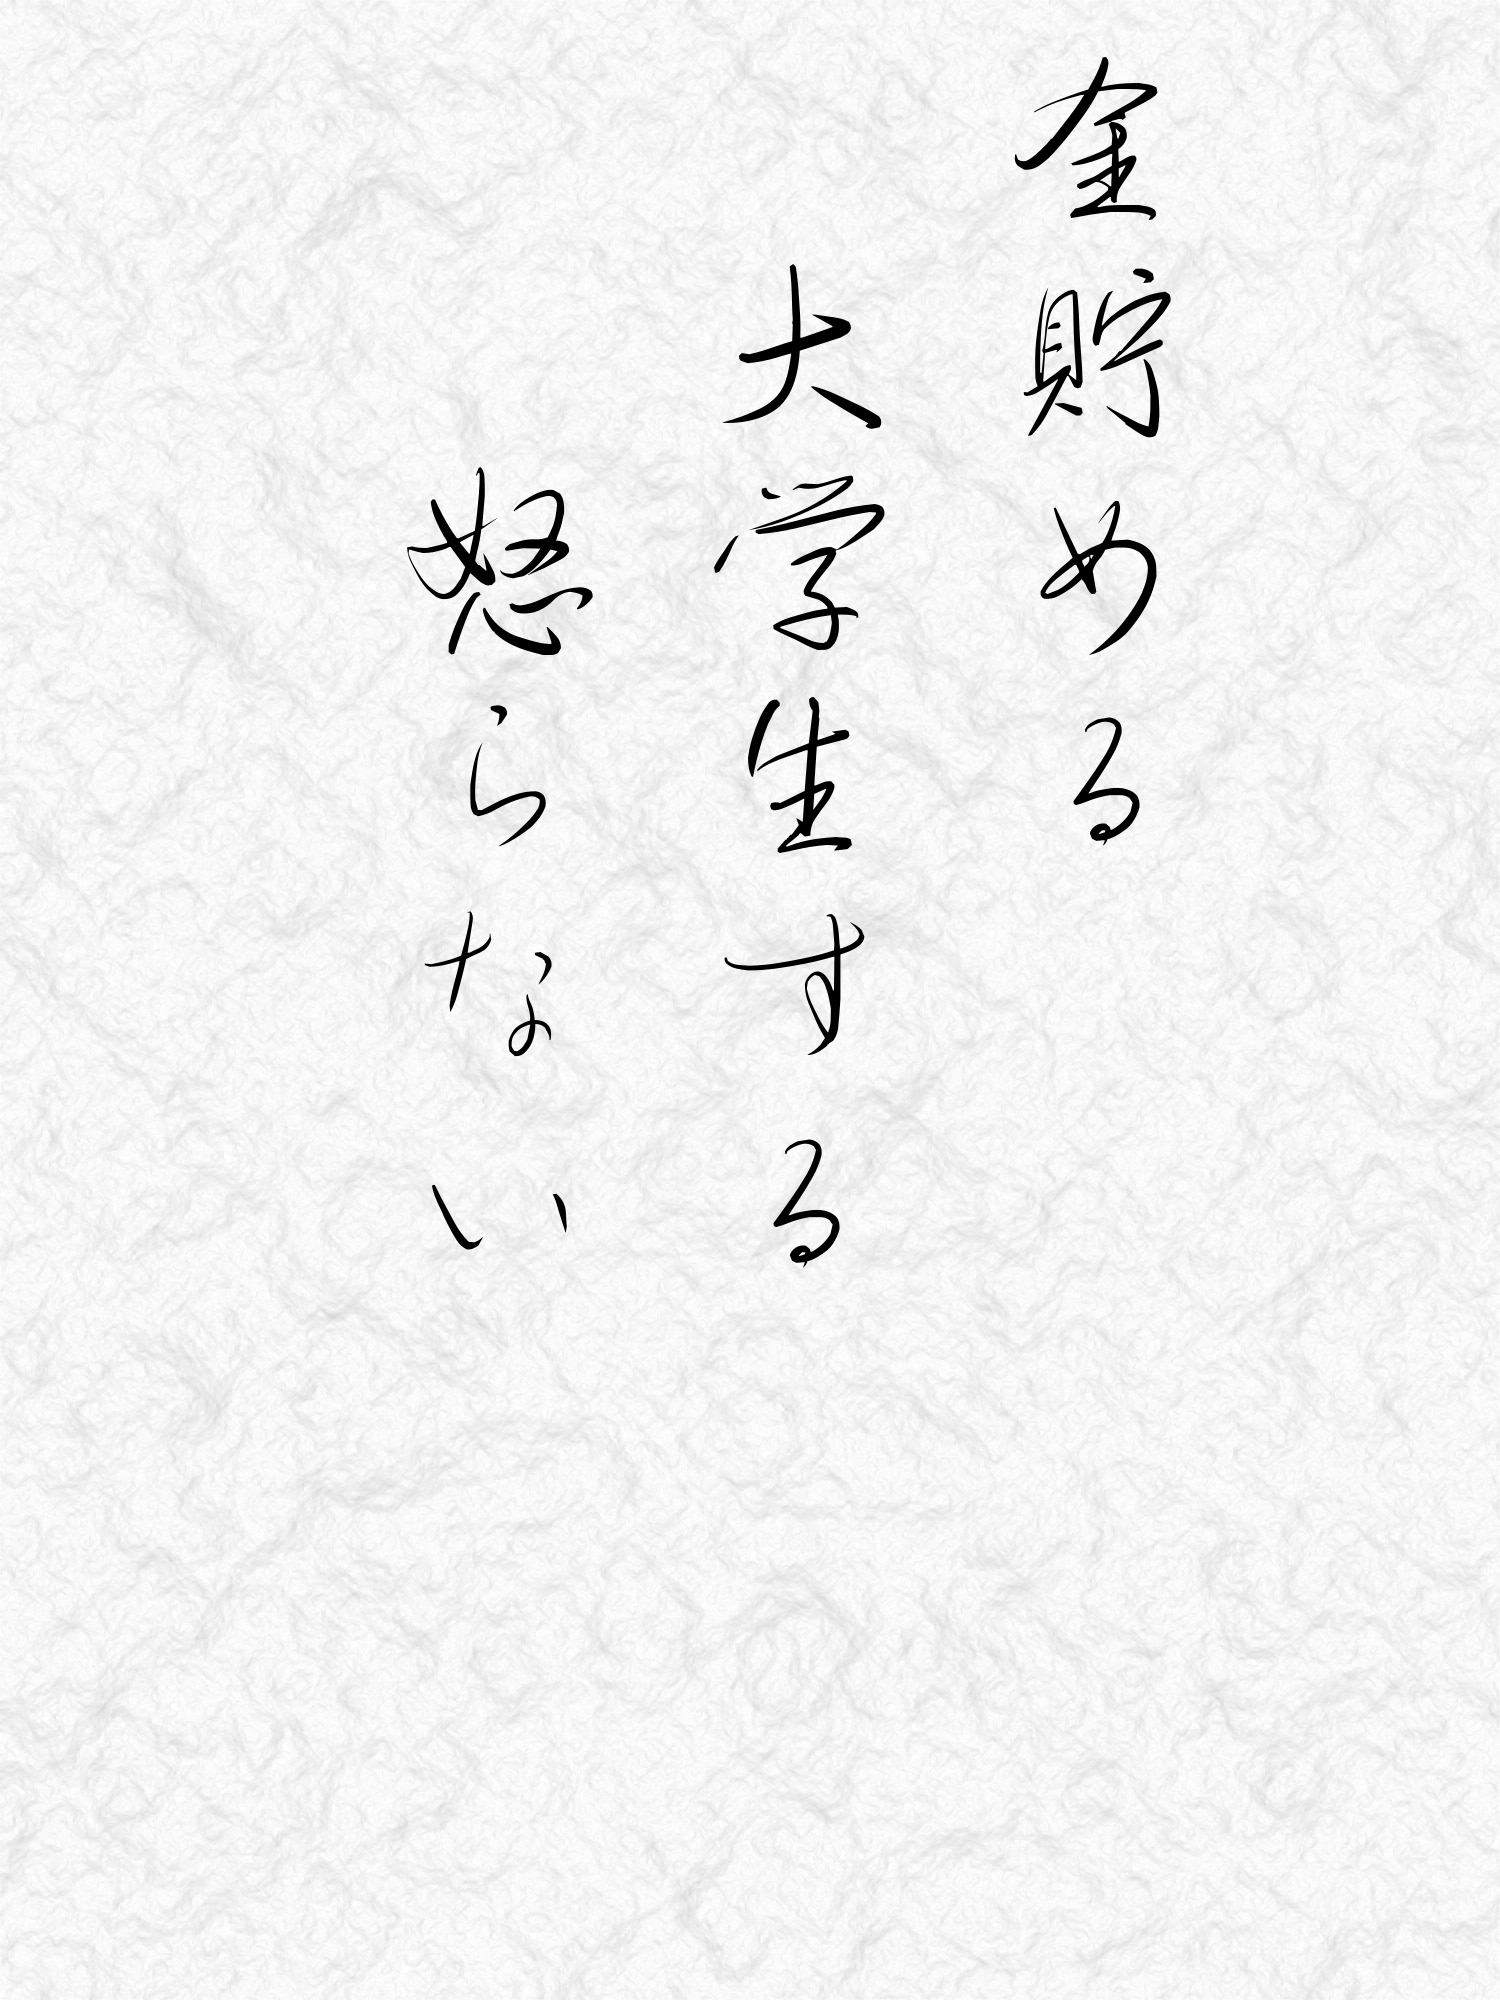 金貯める
大学生する
怒らない